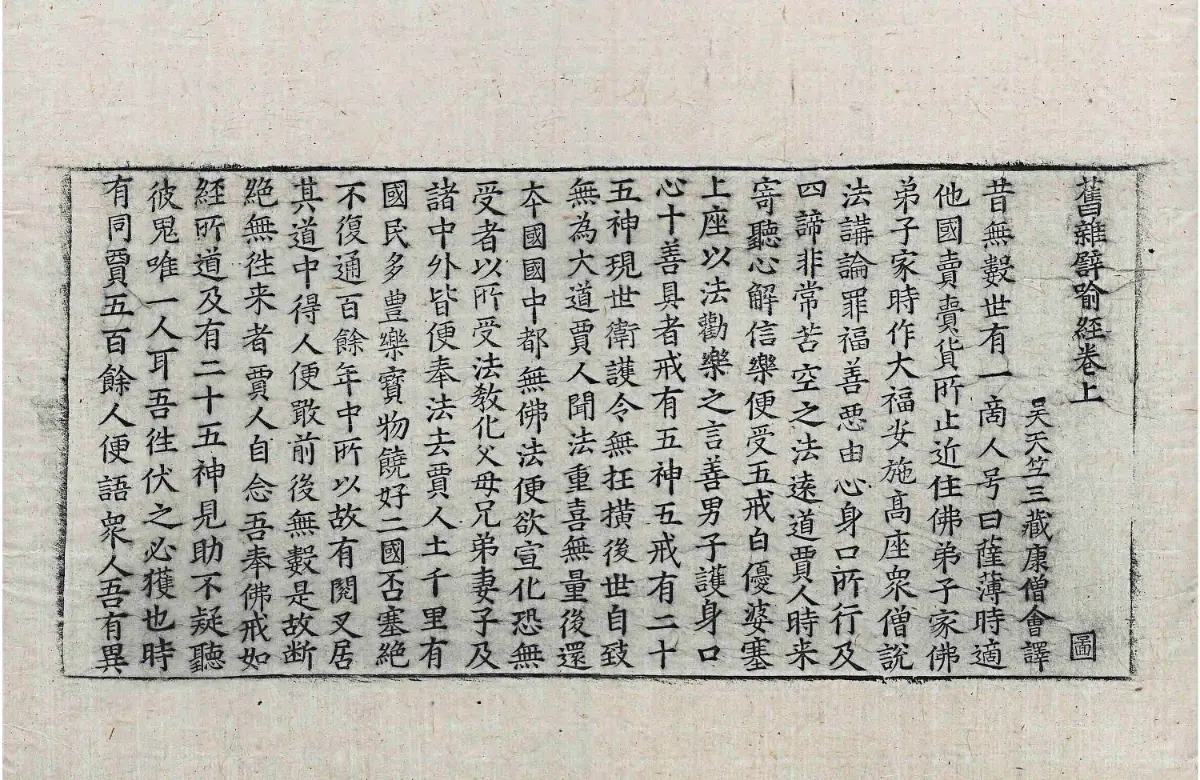 舊雜譬喻經卷上
圖
吳天竺三藏康僧會譯
昔無數世有一商人号曰薩薄時適
他國賣賷貨所止近住佛弟子家佛
弟子家時作大福安施髙座衆僧說
法講論罪福善惡由心身口所行及
四諦非常苦空之法遠道賈人時来
寄聽心解信樂便受五戒白優婆塞
上座以法勸樂之言善男子護身口
心十善具者戒有五神五戒有二十
五神現世衛護令無抂撗後世自致
無為大道賈人聞法重喜無量後還
本國國中都無佛法便欲宣化恐無
受者以所受法教化父母兄弟妻子及
諸中外皆便奉法去賈人土千里有
國民多豊樂寳物饒好二國否塞絶
不復通百餘年中所以故有閱叉居
其道中得人便噉前後無數是故断
絶無徃来者賈人自念吾奉佛戒如
經所道及有二十五神見助不疑聽
彼鬼唯一人耳吾徃伏之必獲也時
有同賈五百餘人便語衆人吾有異